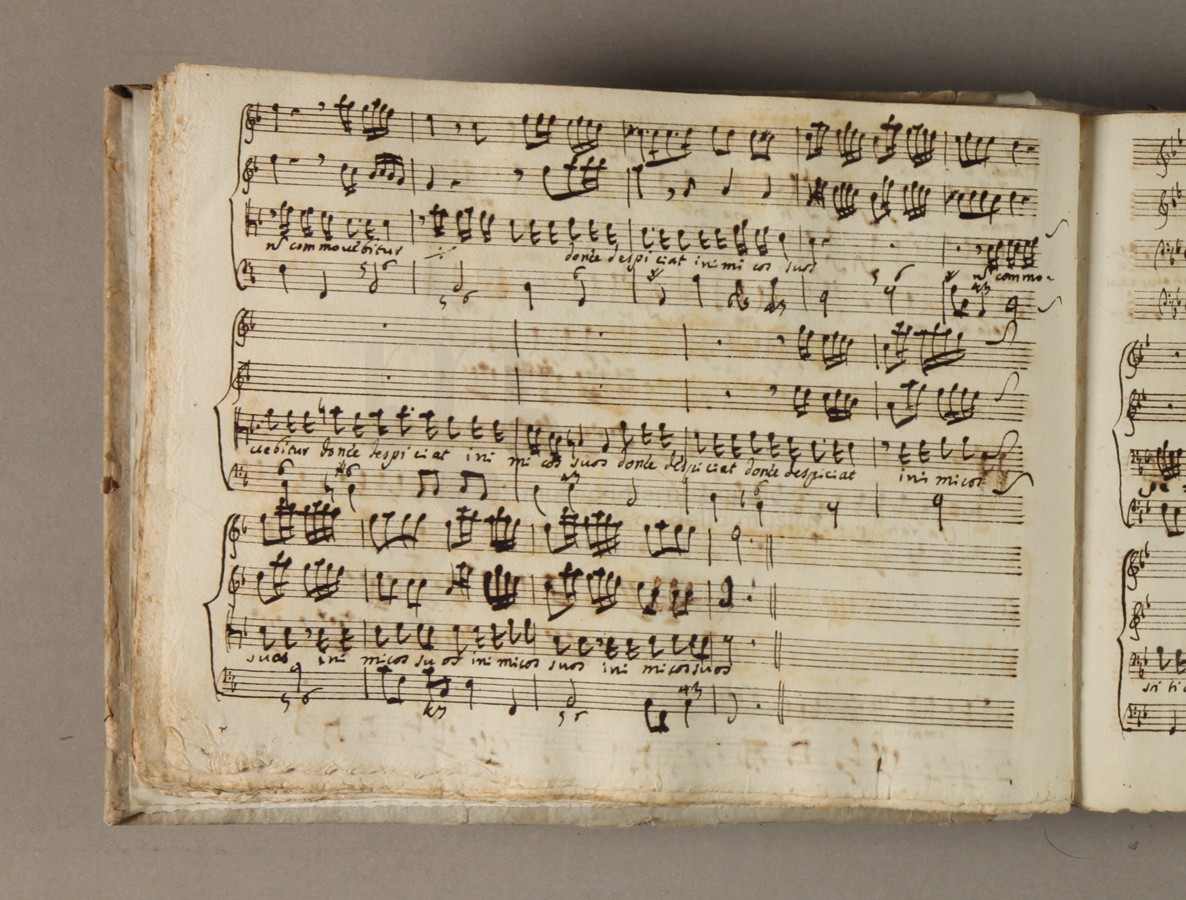 nō commovebitur donec despiciat inimicos suos nō commo-
vebitur donec despiciat inimicos suos donec despiciat donec despiciat inimicos
suos inimicos suos inimicos suos inimicos suos